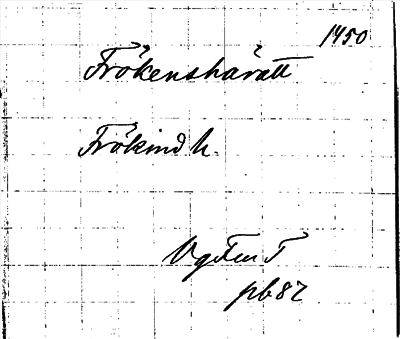 1450
Frökenshäratt
Frökind h.
Vg Fru T
pb 82